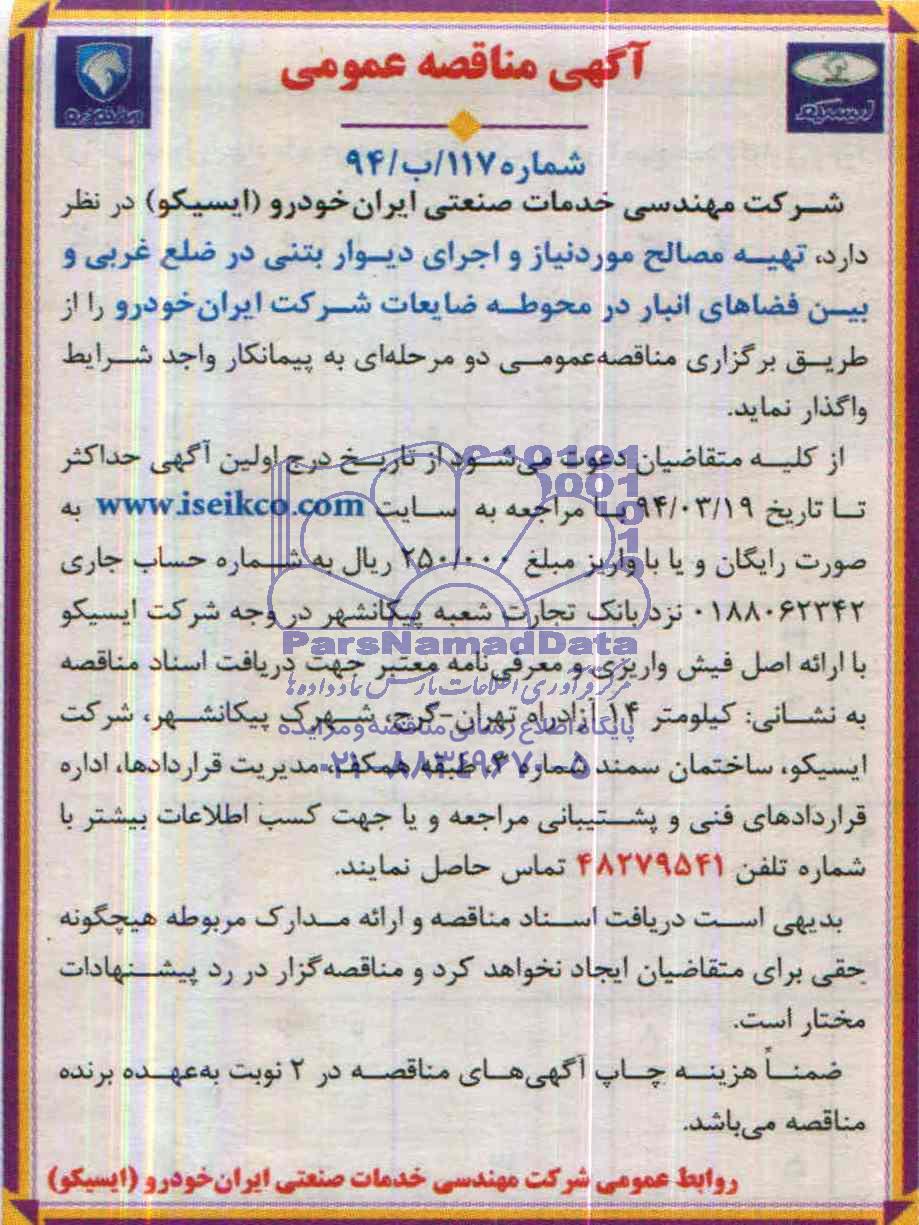 آگهی مناقصه عمومی
ایران خودرو
ایسیکو
شماره ۱۱۷/ب/۹۴
شرکت مهندسی خدمات صنعتی ایران‌خودرو (ایسیکو) در نظر
دارد، تهیه مصالح موردنیاز و اجرای دیوار بتنی در ضلع غربی و
بین فضاهای انبار در محوطه ضایعات شرکت ایران‌خودرو را از
طریق برگزاری مناقصه‌عمومی دو مرحله‌ای به پیمانکار واجد شرایط
واگذار نماید.
از کلیه متقاضیان دعوت می‌شود از تاریخ درج اولین آگهی حداکثر
تا تاریخ ۹۴/۰۳/۱۹ با مراجعه به سایت www.iseikco.com به
صورت رایگان و یا با واریز مبلغ ۲۵۰/۰۰۰ ریال به شماره حساب جاری
۰۱۸۸۰۶۲۳۴۲ نزد بانک تجارت شعبه پیکانشهر در وجه شرکت ایسیکو
ParsNamadData
با ارائه اصل فیش واریزی و معرفی‌نامه معتبر جهت دریافت اسناد مناقصه
مرکز فرآوری اطلاعات پارس نماد داده‌ها
به نشانی: کیلومتر ۱۴ آزادراه تهران-کرج، شهرک پیکانشهر، شرکت
پایگاه اطلاع رسانی مناقصه و مزایده
ایسیکو، ساختمان سمند شماره ۴، طبقه همکف، مدیریت قراردادها، اداره
۰۲۱-۸۸۳۴۹۶۷۰-۵
قراردادهای فنی و پشتیبانی مراجعه و یا جهت کسب اطلاعات بیشتر با
شماره تلفن ۴۸۲۷۹۵۴۱ تماس حاصل نمایند.
بدیهی است دریافت اسناد مناقصه و ارائه مدارک مربوطه هیچگونه
حقی برای متقاضیان ایجاد نخواهد کرد و مناقصه‌گزار در رد پیشنهادات
مختار است.
ضمناً هزینه چاپ آگهی‌های مناقصه در ۲ نوبت به‌عهده برنده
مناقصه می‌باشد.
روابط عمومی شرکت مهندسی خدمات صنعتی ایران‌خودرو (ایسیکو)